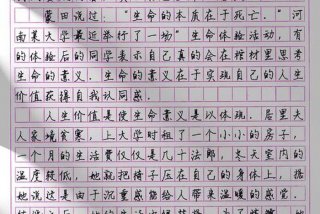 蒙田说过．“生命的本质在于死亡．”河
南某大学最近举行了一场“生命体验活动，有
的体验后的同学表示自己真的会在棺材里思考
生命的意义．生命的意义在于实现自己的人生
价值获得自我认同感．
人生价值是使生命意义是以体现．居里夫
人家境贫寒，上大学时租了一个小小的房子，
一个月的生活费仅仅是几十法郎，冬天室内的
温度较低，她就把椅子压在自己的身体上，据
她说这是由于沉重感能给人带来温暖的感觉．